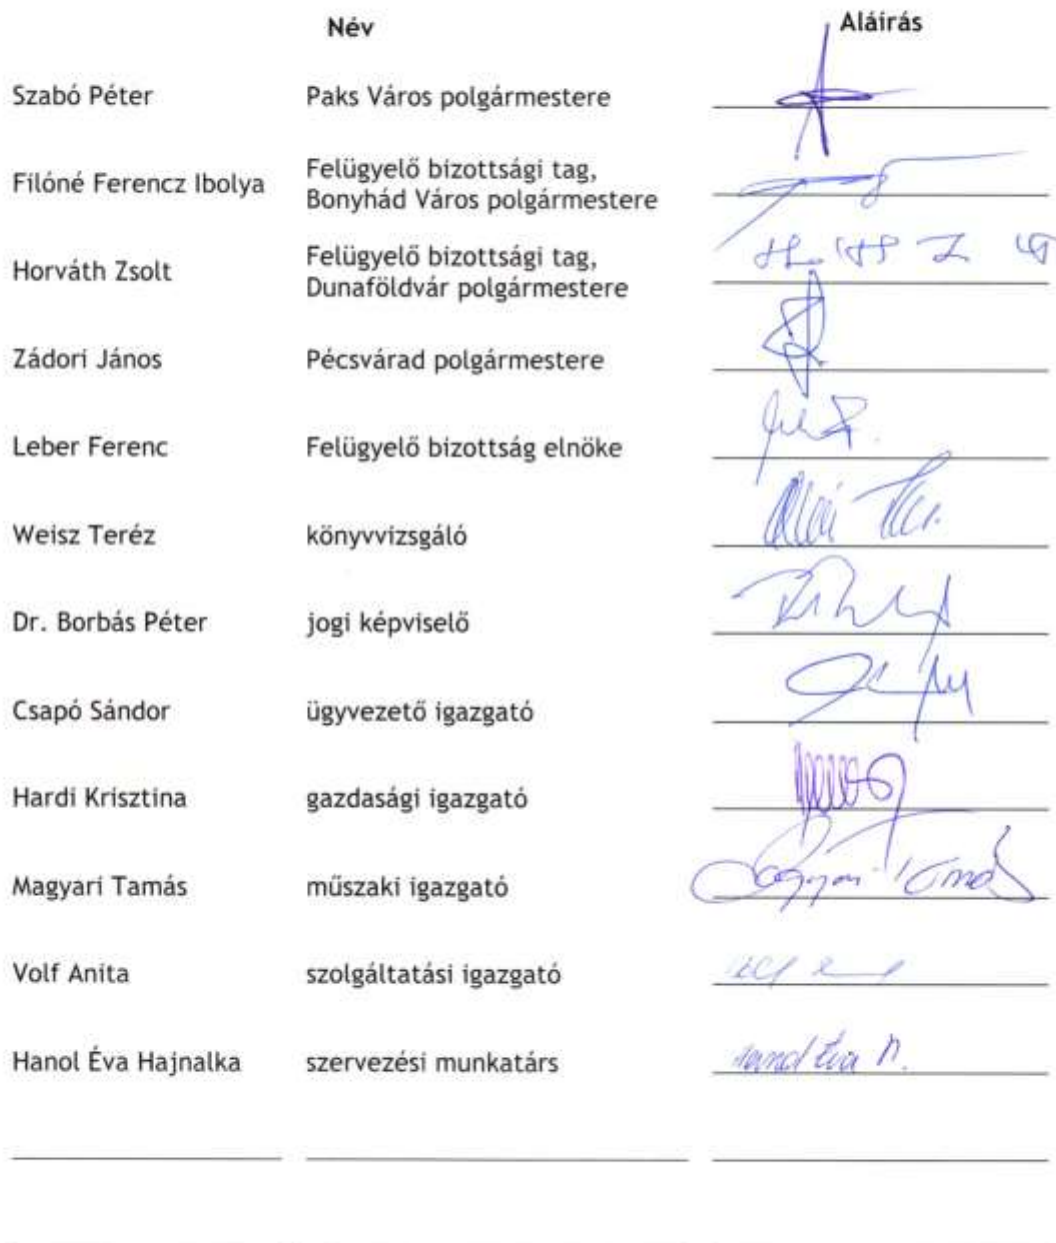 Név Aláírás
Szabó Péter Paks Város polgármestere
Filóné Ferencz Ibolya Felügyelő bizottsági tag,
Bonyhád Város polgármestere
Horváth Zsolt Felügyelő bizottsági tag,
Dunaföldvár polgármestere
Zádori János Pécsvárad polgármestere
Leber Ferenc Felügyelő bizottság elnöke
Weisz Teréz könyvvizsgáló
Dr. Borbás Péter jogi képviselő
Csapó Sándor ügyvezető igazgató
Hardi Krisztina gazdasági igazgató
Magyari Tamás műszaki igazgató
Volf Anita szolgáltatási igazgató
Hanol Éva Hajnalka szervezési munkatárs Hanol Éva H.